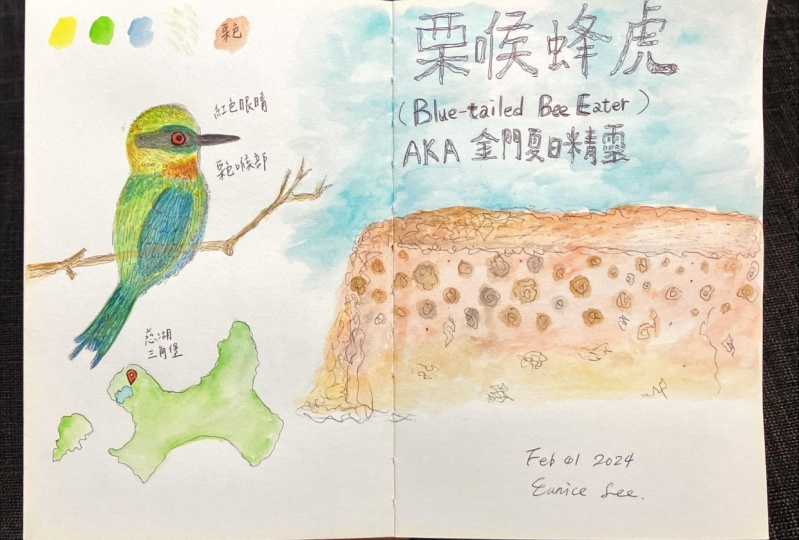 栗色
紅色眼睛
栗色喉部
慈湖
三角堡
栗喉蜂虎
(Blue-tailed Bee Eater)
AKA 金門夏日精靈
Feb 01 2024
Eunice See.